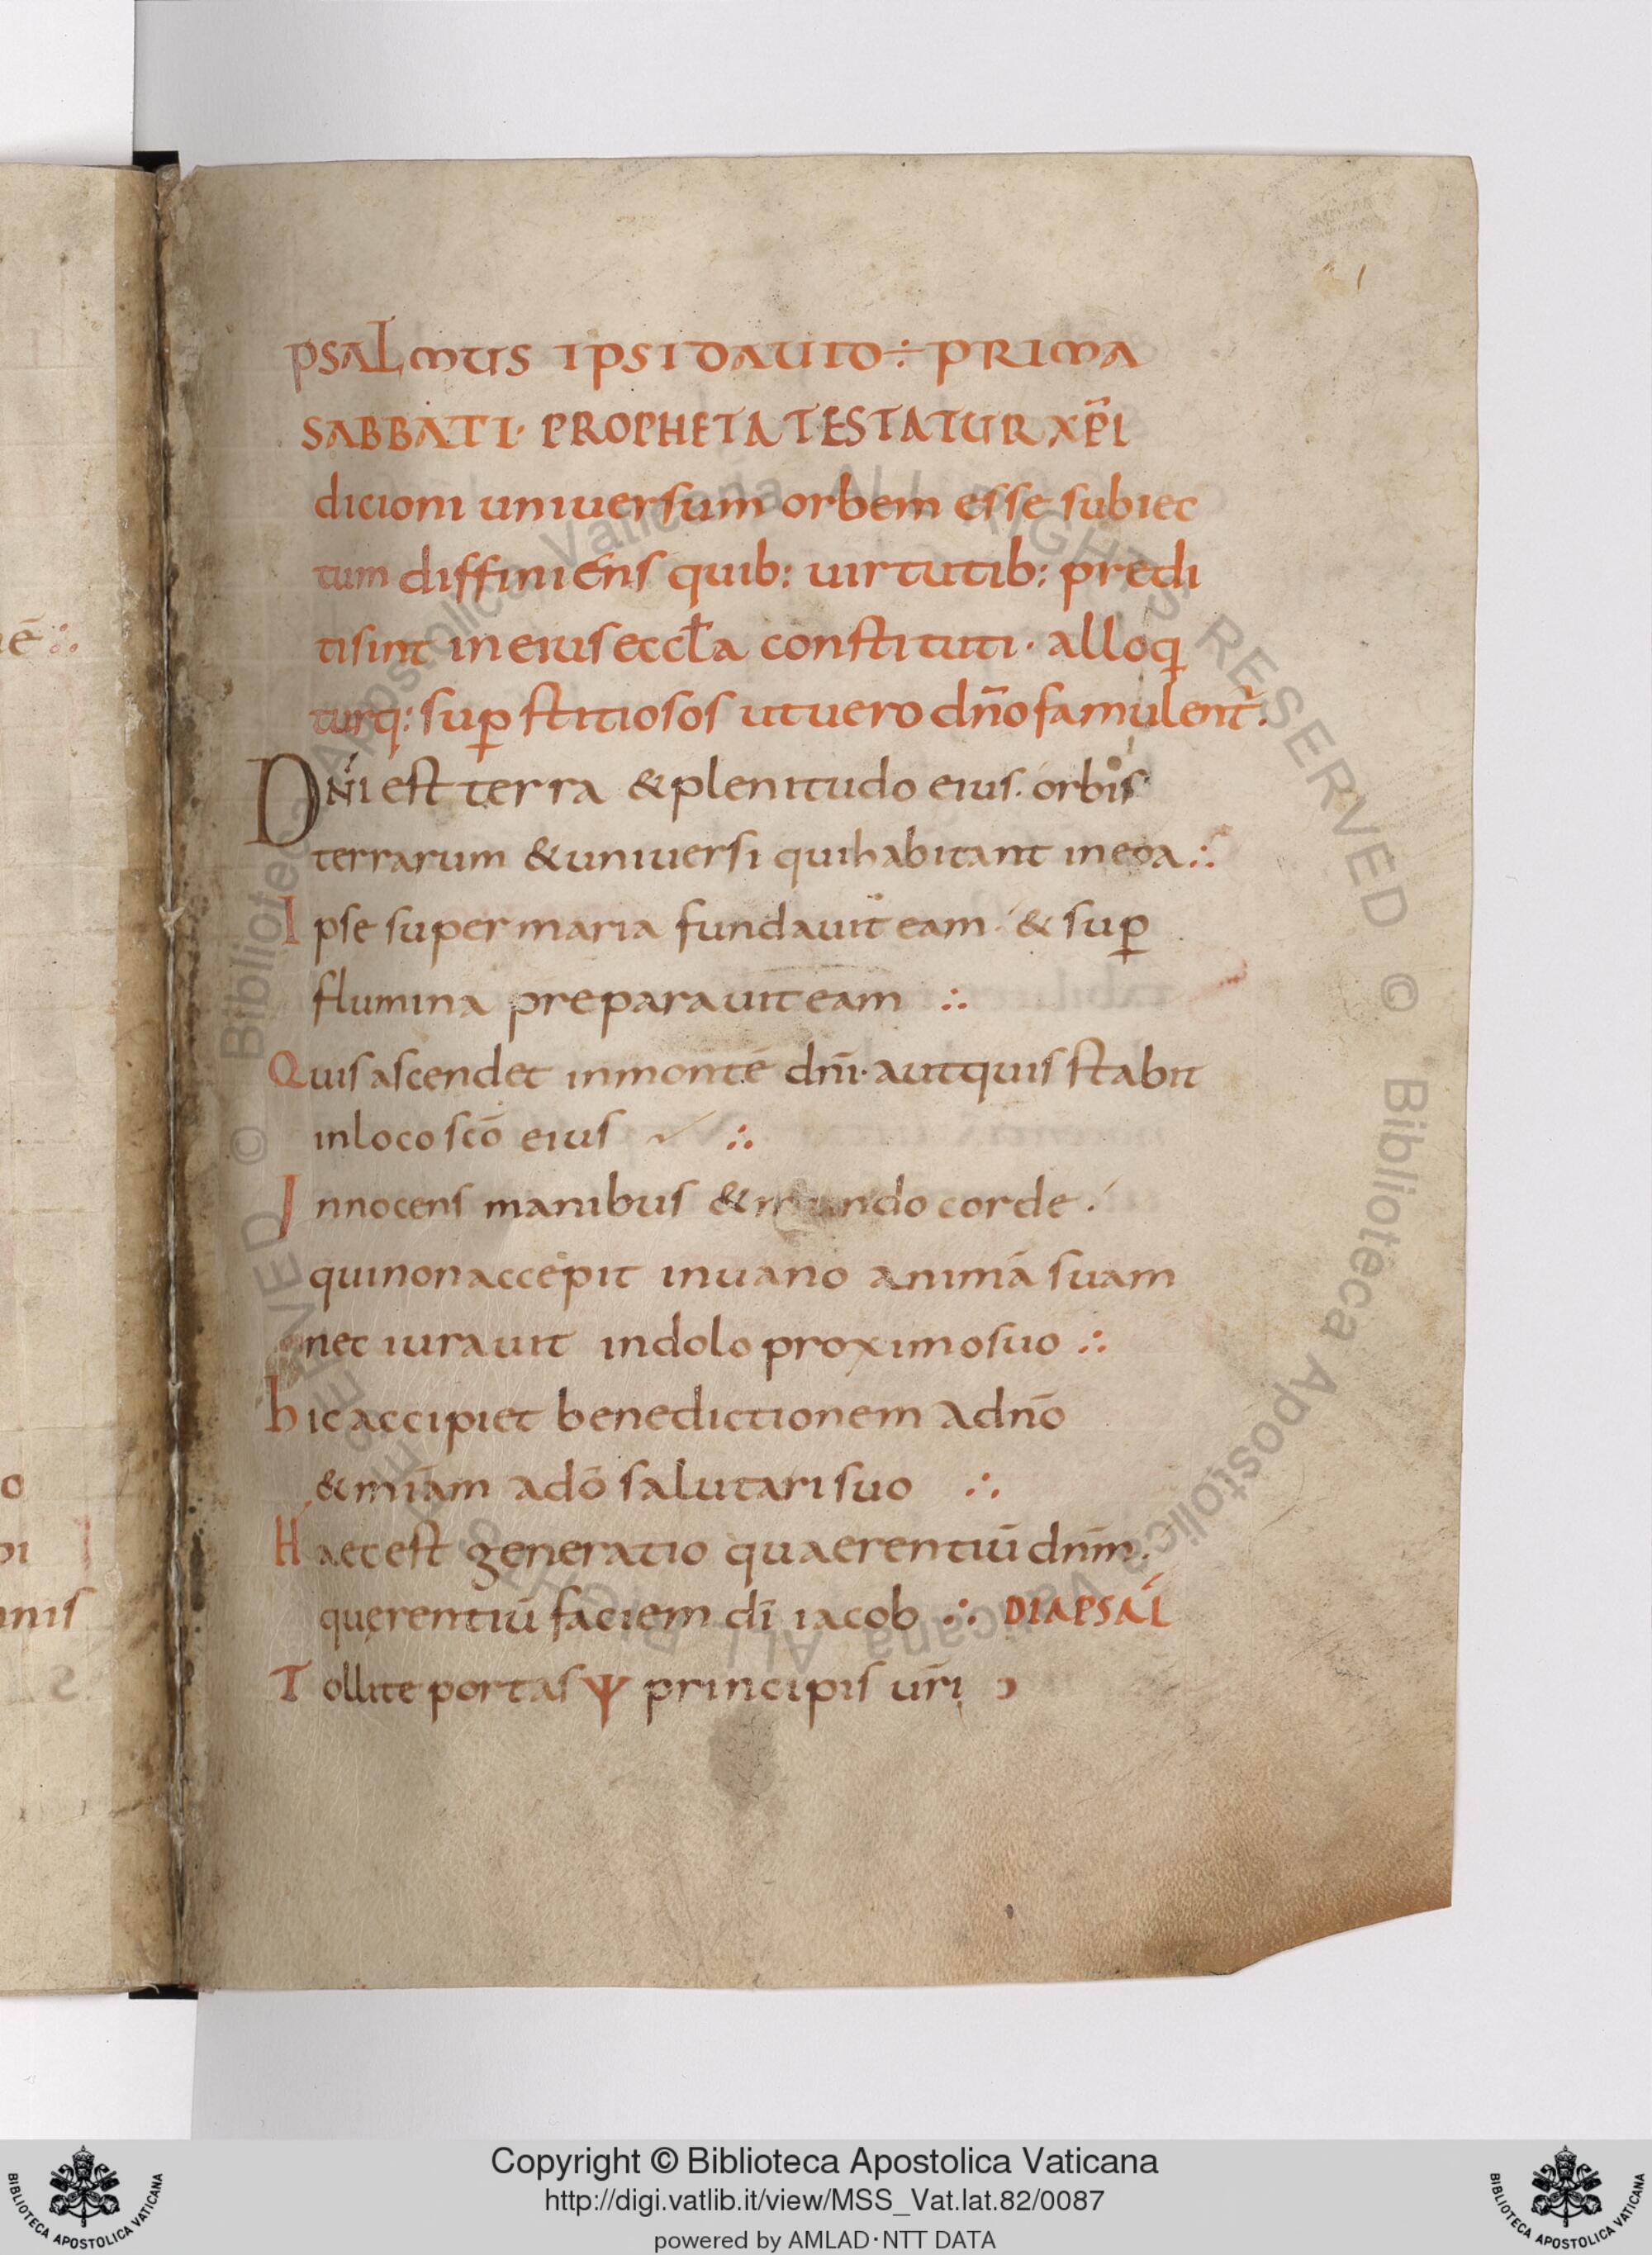 é ∴
o
pi
nnis
PSALMUS IPSI DAUID ÷ PRIMA
SABBATI· PROPHETA TESTATUR XP̄I
dicioni uniuersum orbem esse subiec
tum diffiniens quib: uirtutib: predi
ti sint in eius eccła constituti· alloq
turq: sup̲stitiosos ut uero dn̄o famulent̄.
Dn̄i est terra & plenitudo eius. orbis
terrarum & uniuersi qui habitant in eoa ∴
Ipse super maria fundauit eam· & sup̲
flumina preparauit eam ∴
Quis ascendet in monte dn̄i· aut quis stabit
in loco sc̄o eius ∴
Innocens manibus & mundo corde ·
qui non accepit in uano animā suam
nec iurauit in dolo proximo suo ∴
hic accipiet benedictionem a dn̄o
& miām a dō salutari suo ∴
Haec est generatio quaerentiū dnm̄.
querentiū faciem dī iacob ∴ DIAPSAL
Tollite portas Ψ principis ur̄i
© Biblioteca Apostolica Vaticana ALL RIGHTS RESERVED
© Biblioteca Apostolica Vaticana ALL RIGHTS RESERVED
Copyright © Biblioteca Apostolica Vaticana
http://digi.vatlib.it/view/MSS_Vat.lat.82/0087
powered by AMLAD·NTT DATA
BIBLIOTECA APOSTOLICA VATICANA
BIBLIOTECA APOSTOLICA VATICANA